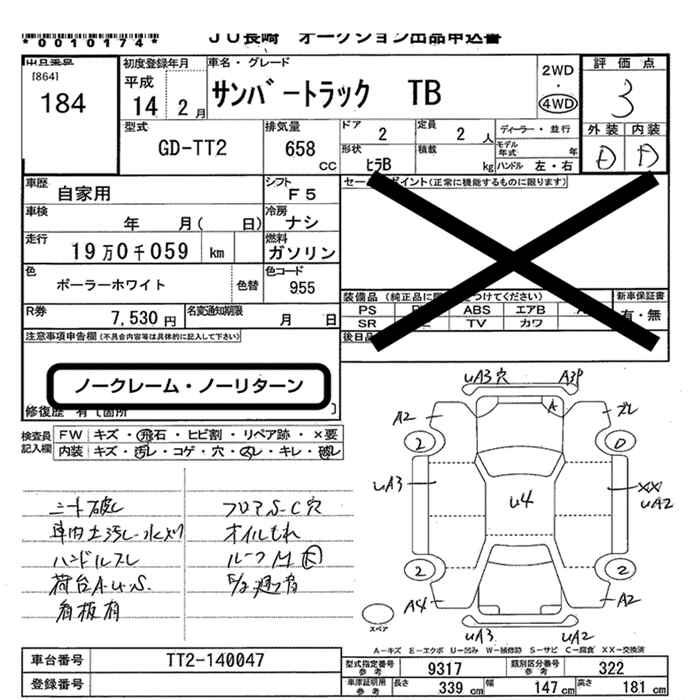 *0010174*
JU長崎 オークション出品申込書
出品番号
[864]
184
初度登録年月
平成
14年 2月
車名・グレード
サンバートラック TB
2WD
・
4WD
評価点
3
外装 内装
D D
型式
GD-TT2
排気量
658
CC
ドア
2
定員
2 人
ディーラー・並行
形状
ヒラB
積載
kg
モデル年式 年
ハンドル 左・右
車歴
自家用
シフト
F5
車検
年 月( 日)
冷房
ナシ
走行
19万0千059 km
燃料
ガソリン
色
ポーラーホワイト
色替
色コード
955
R券
7,530 円
名変通知期限
月 日
セールスポイント(正常に機能するものに限ります)
装備品 (純正品に限りをつけてください)
新車保証書
PS ABS エアB
有・無
SR TV カワ
後日品
注意事項申告欄(不具合内容等は具体的に記入して下さい)
ノークレーム・ノーリターン
修復歴 有 [箇所 ]
検査員記入欄
FW キズ・飛石・ヒビ割・リペア跡・×要
内装 キズ・汚レ・コゲ・穴・スレ・キレ・破レ
シート破レ
車内土汚レ・水入り
ハンドルスレ
荷台A.U.S.
看板有
フロアS-C穴
オイルもれ
ルーフM
UA3穴 A3P
A2 A ズレ
2 0
UA3 U4 XX
UA2
2 2
A4 A2
スペア
UA3 UA2
A-キズ E-エクボ U-凹み W-補修跡 S-サビ C-腐食 XX-交換済
車台番号
TT2-140047
登録番号
型式指定番号
参考
9317
類別区分番号
参考
322
車庫証明用
参考
長さ 339 cm 幅 147 cm 高さ 181 cm